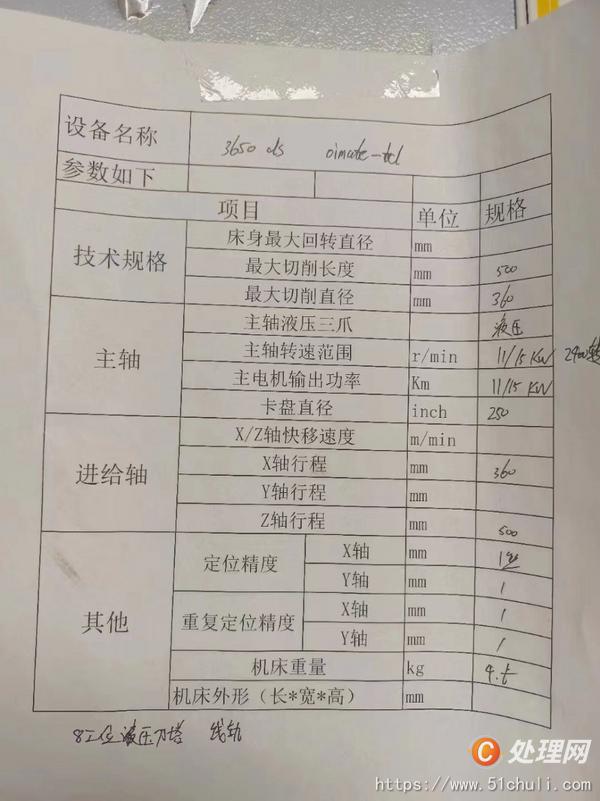 设备名称 3650 ds oimate-td
参数如下
项目 单位 规格
技术规格
床身最大回转直径 mm
最大切削长度 mm 500
最大切削直径 mm 360
主轴
主轴液压三爪 液压
主轴转速范围 r/min 11/15 KW 2400转
主电机输出功率 Km 11/15 KW
卡盘直径 inch 250
进给轴
X/Z轴快移速度 m/min
X轴行程 mm 360
Y轴行程 mm
Z轴行程 mm 500
其他
定位精度 X轴 mm
Y轴 mm 1
重复定位精度 X轴 mm 1
Y轴 mm 1
机床重量 kg 4.t
机床外形（长*宽*高） mm
8工位液压刀塔 线轨
C 处理网
https://www.51chuli.com